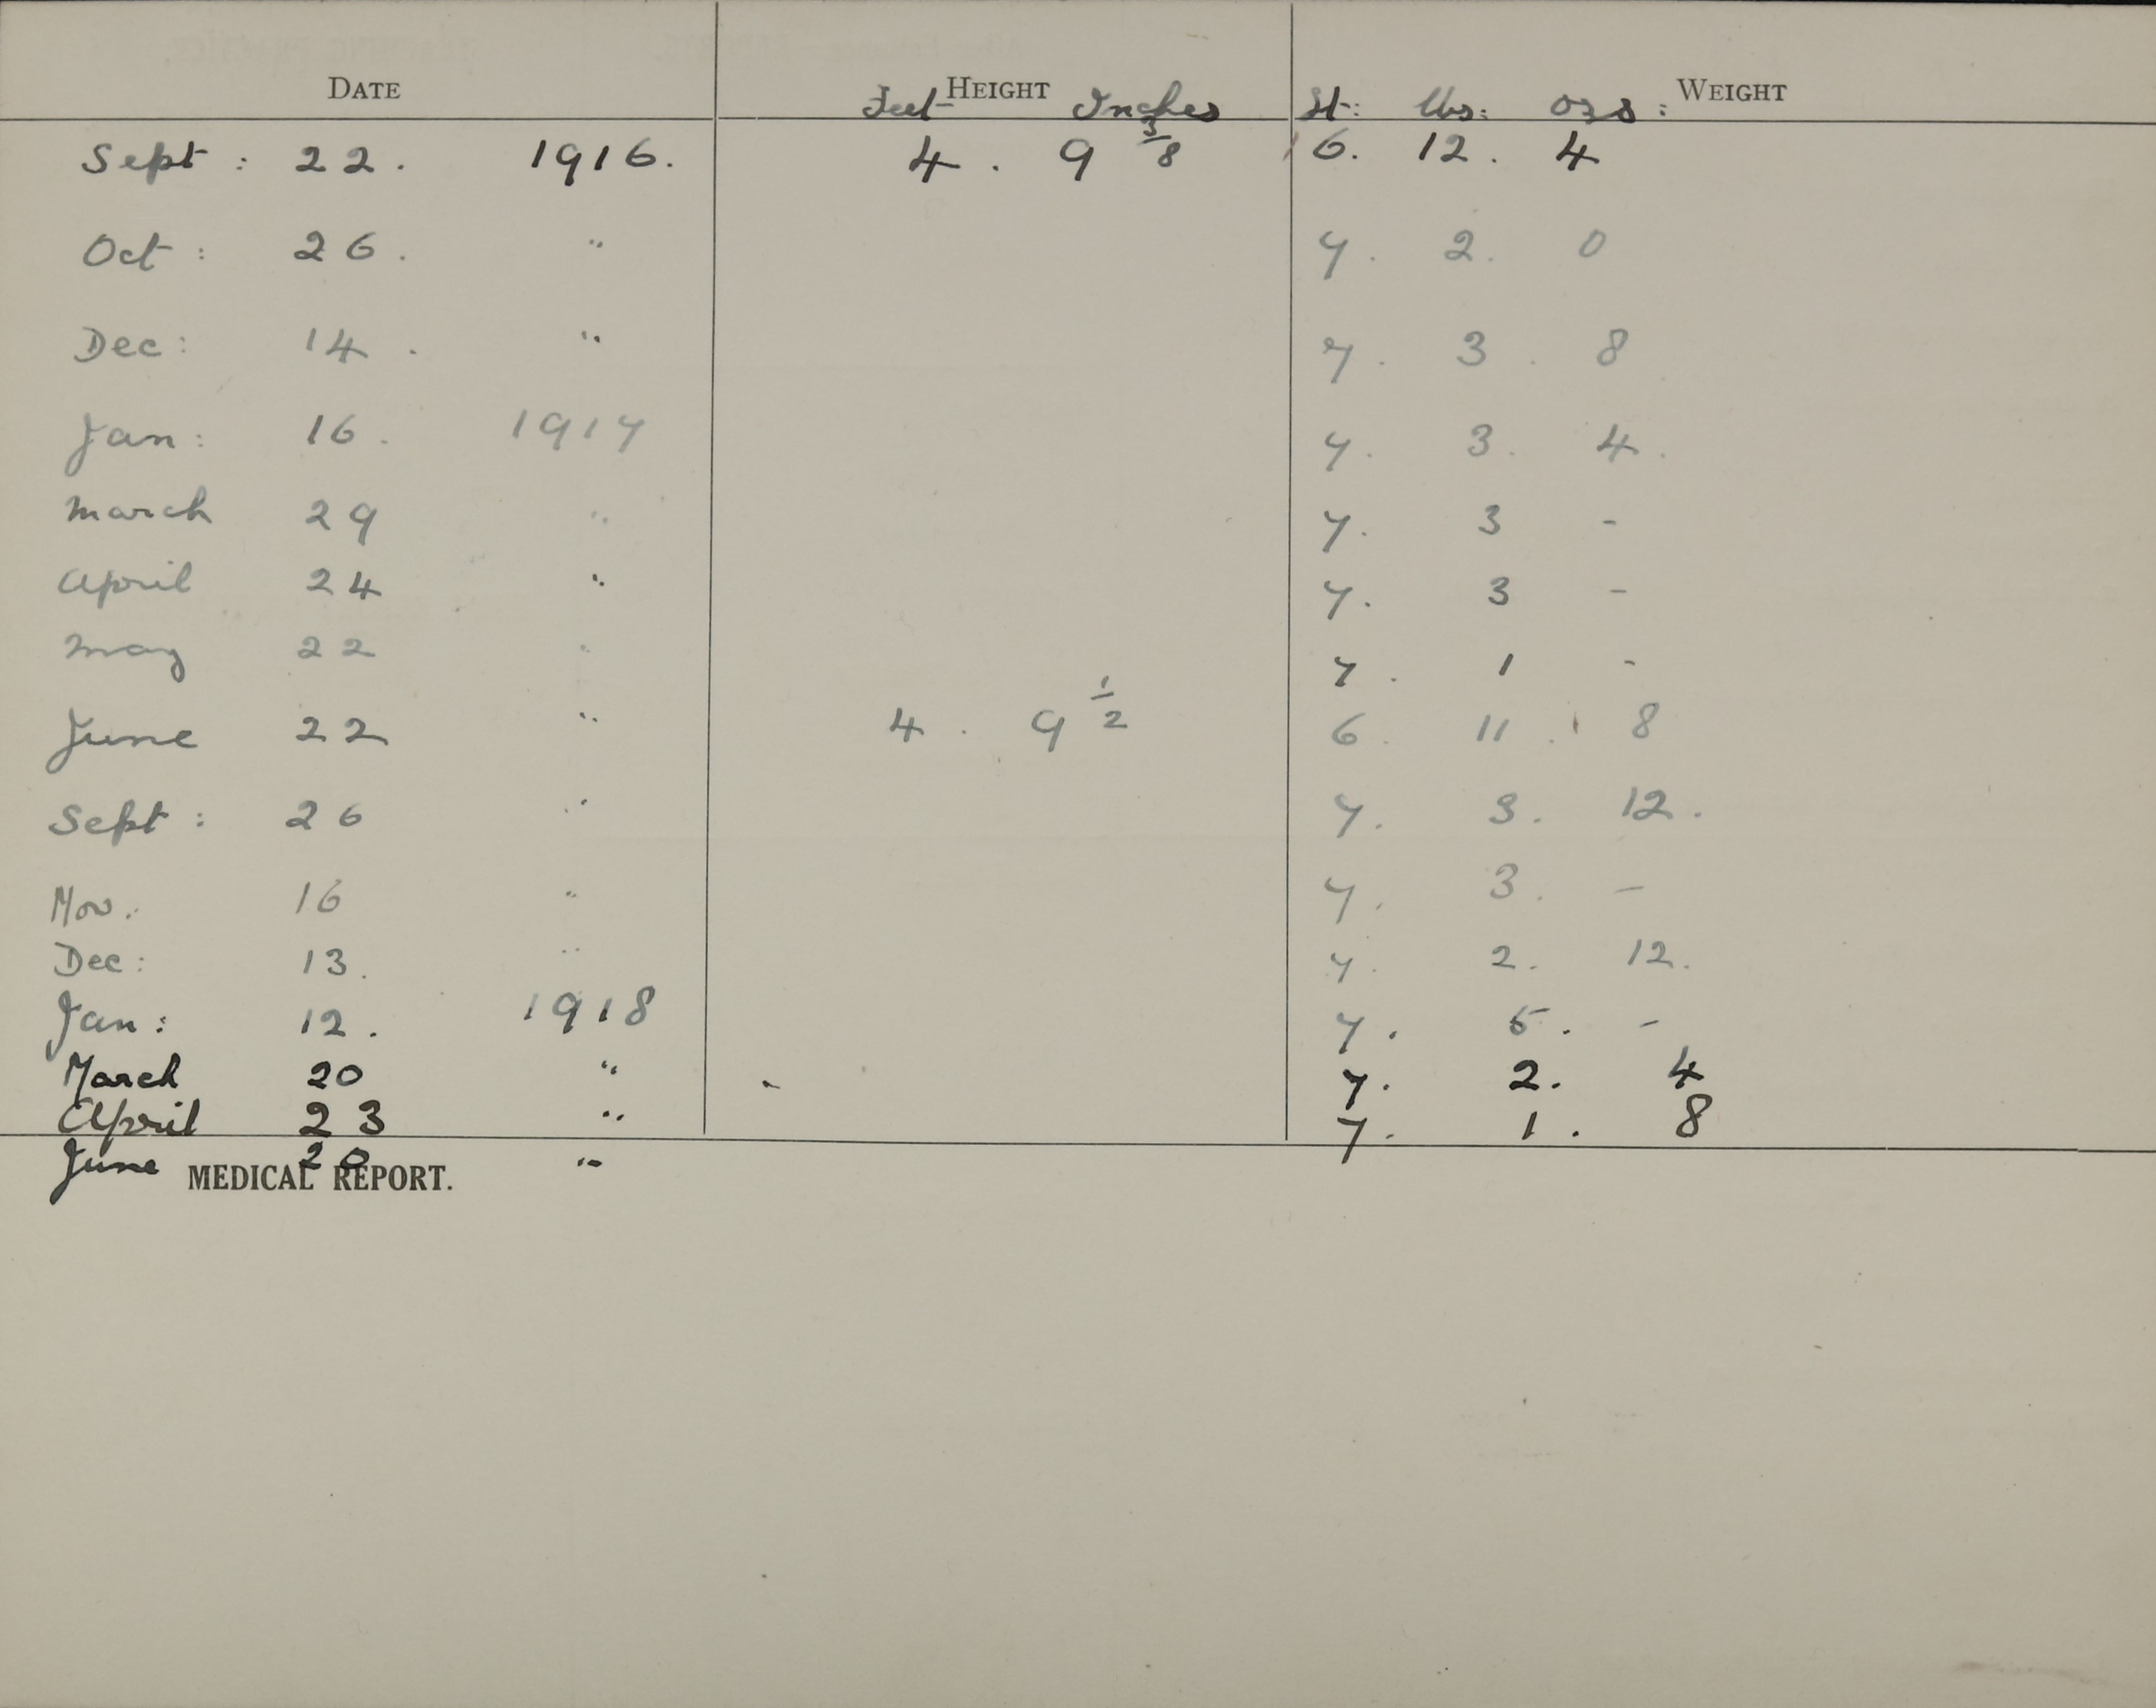 DATE HEIGHT WEIGHT
Feet Inches St: lbs: ozs:
Sept: 22. 1916. 4. 9 3/8 6. 12. 4
Oct: 26. " 7. 2. 0
Dec: 14. " 7. 3. 8
Jan: 16. 1917 7. 3. 4.
March 29 " 7. 3 -
April 24 " 7. 3 -
May 22 " 7. 1 -
June 22 " 4. 9 1/2 6. 11. 8
Sept: 26 " 7. 3. 12.
Nov. 16 " 7. 3. -
Dec: 13. " 7. 2. 12.
Jan: 12. 1918 7. 5. -
March 20 " 7. 2. 4
April 23 " 7. 1. 8
June 20 "
MEDICAL REPORT.